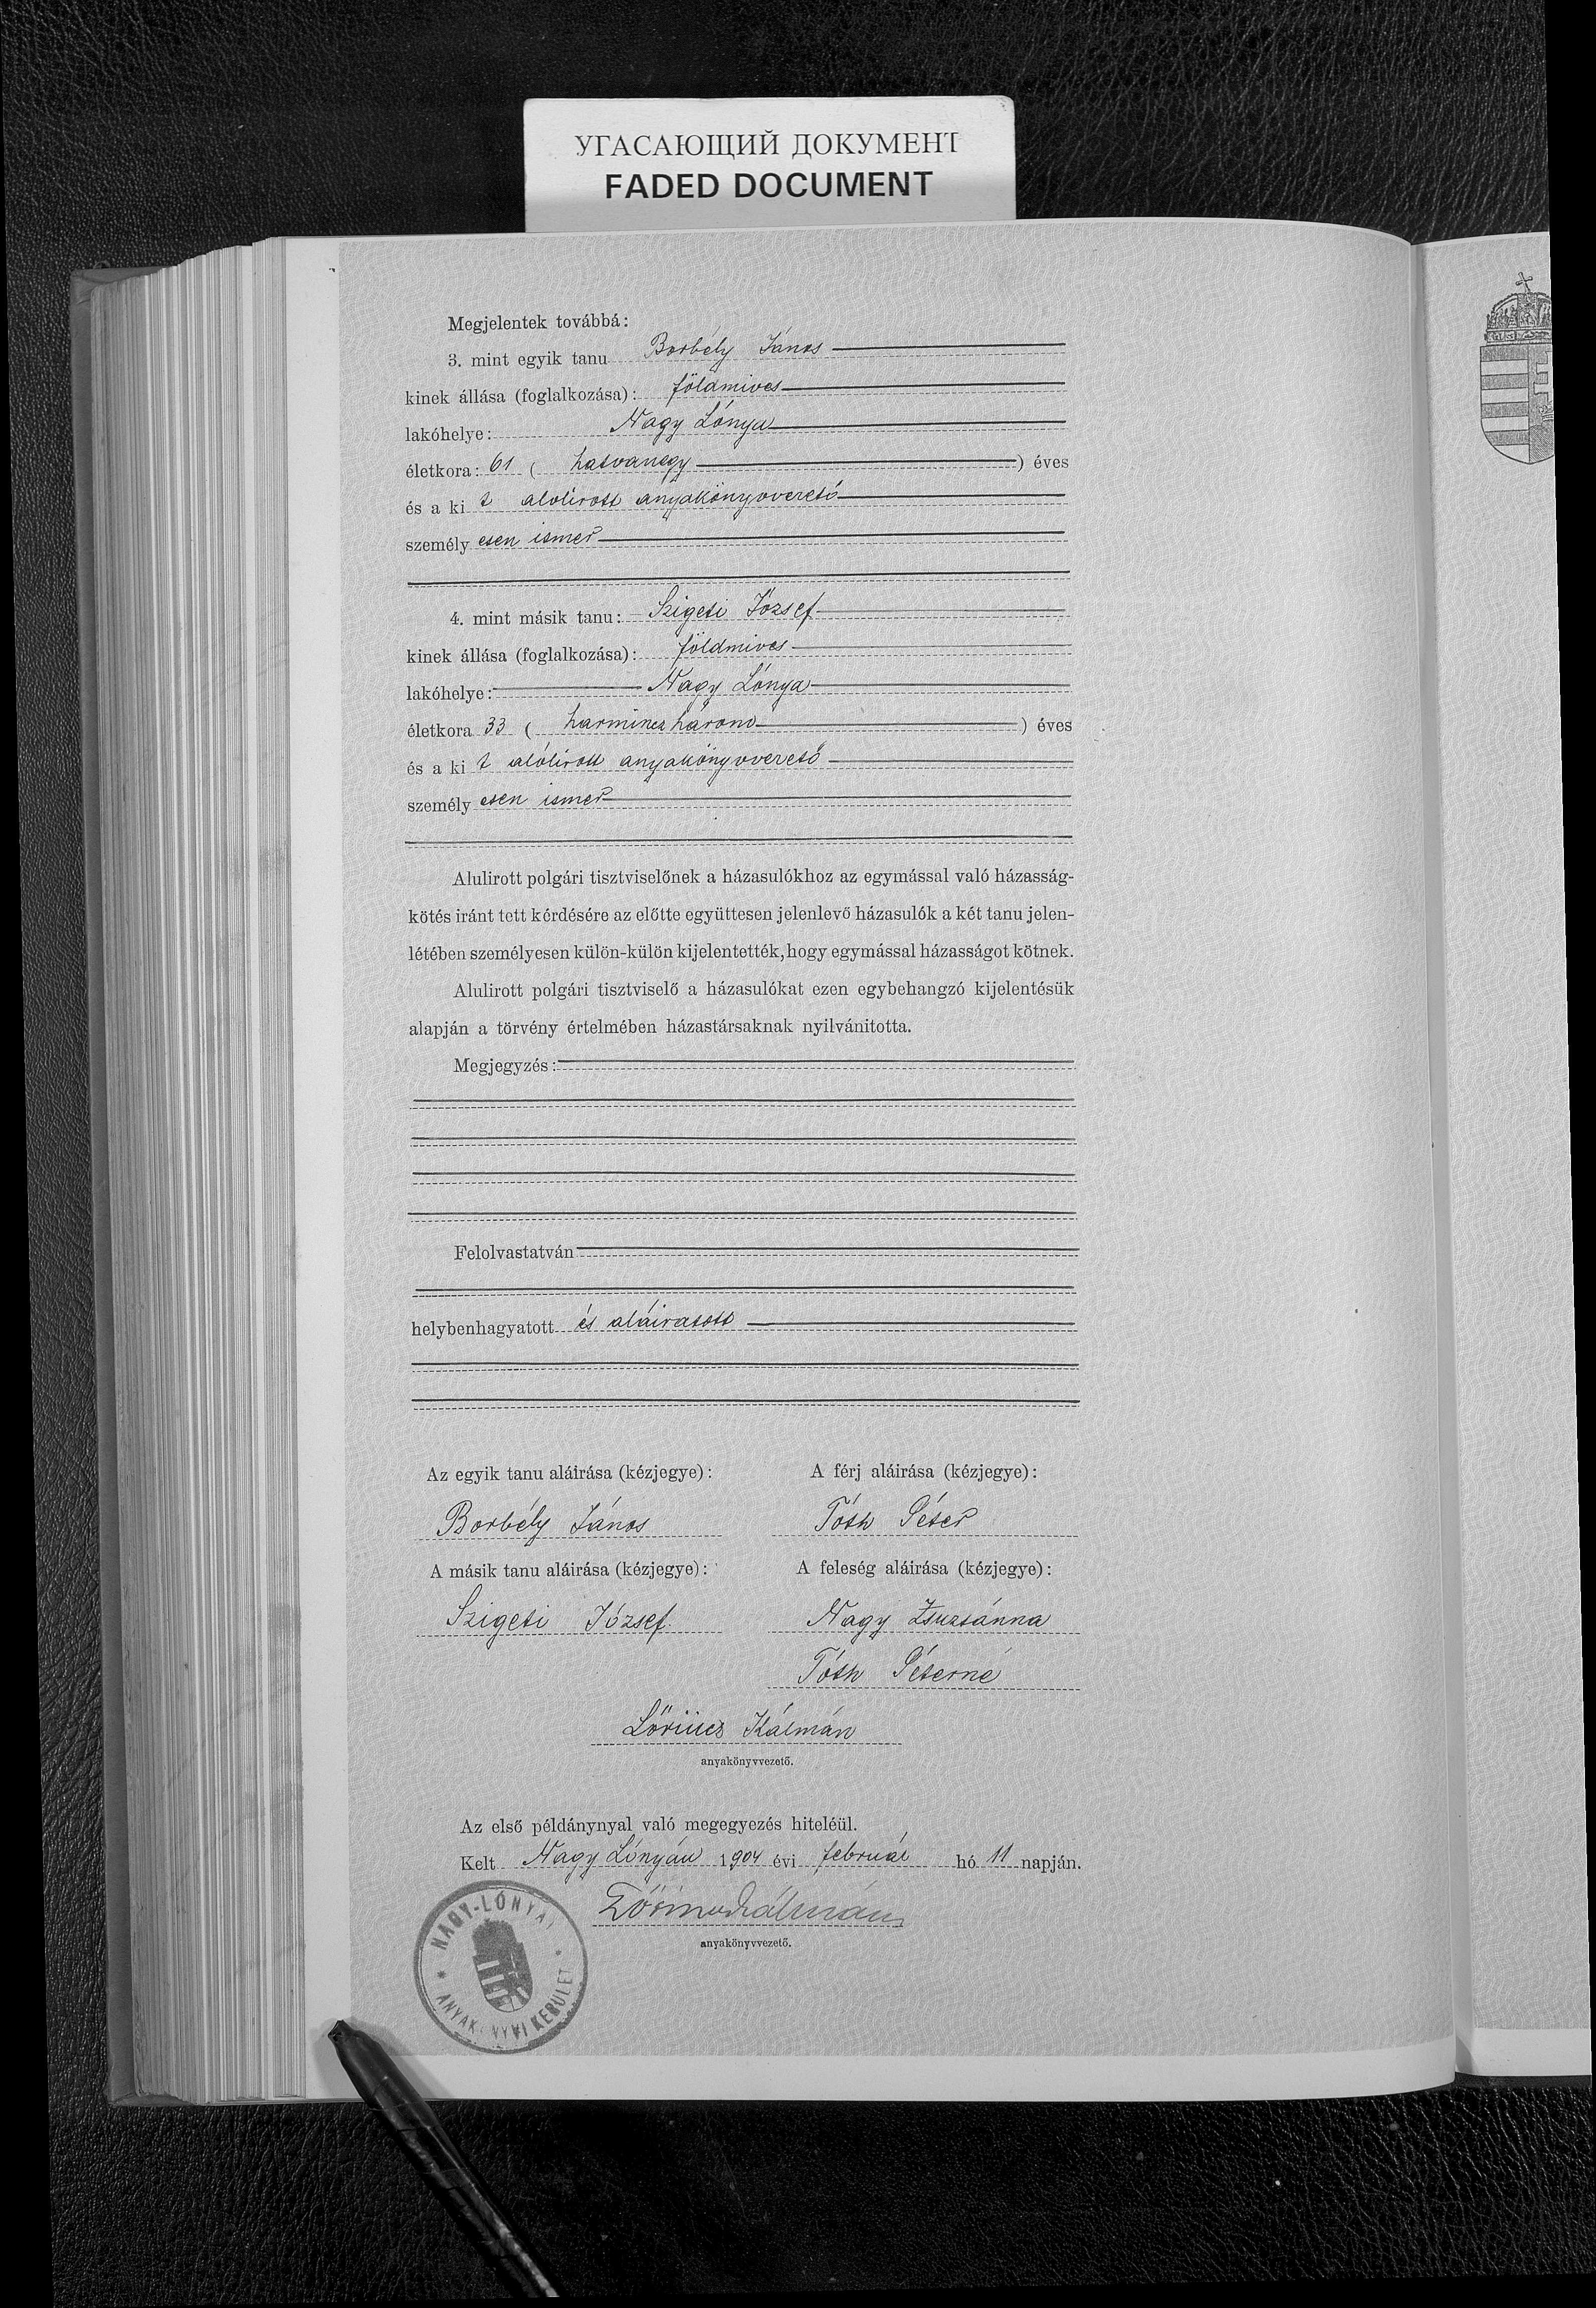 УГАСАЮЩИЙ ДОКУМЕНТ
FADED DOCUMENT
Megjelentek továbbá:
3. mint egyik tanu Borbély János
kinek állása (foglalkozása): földmives
lakóhelye: Nagy Lónya
életkora: 61 ( hatvanegy ) éves
és a ki t alolirott anyakönyvvezető
személy esen ismer
4. mint másik tanu: Szigeti József
kinek állása (foglalkozása): földmives
lakóhelye: Nagy Lónya
életkora 33 ( harminczhárom ) éves
és a ki t alólirott anyakönyvvezető
személy esen ismer
Alulirott polgári tisztviselőnek a házasulókhoz az egymással való házasság-
kötés iránt tett kérdésére az előtte együttesen jelenlevő házasulók a két tanu jelen-
létében személyesen külön-külön kijelentették, hogy egymással házasságot kötnek.
Alulirott polgári tisztviselő a házasulókat ezen egybehangzó kijelentésük
alapján a törvény értelmében házastársaknak nyilvánitotta.
Megjegyzés:
Felolvastatván
helybenhagyatott és aláiratott
Az egyik tanu aláirása (kézjegye): A férj aláirása (kézjegye):
Borbély János Tóth Péter
A másik tanu aláirása (kézjegye): A feleség aláirása (kézjegye):
Szigeti József Nagy Zsuzsánna
Tóth Péterné
Lőrincz Kálmán
anyakönyvvezető.
Az első példánynyal való megegyezés hiteléül.
Kelt Nagy Lónyán 1904 évi február hó 11 napján.
Lőrincz Kálmán
anyakönyvvezető.
NAGY-LÓNYAI
* ANYAKÖNYVI KERÜLET *